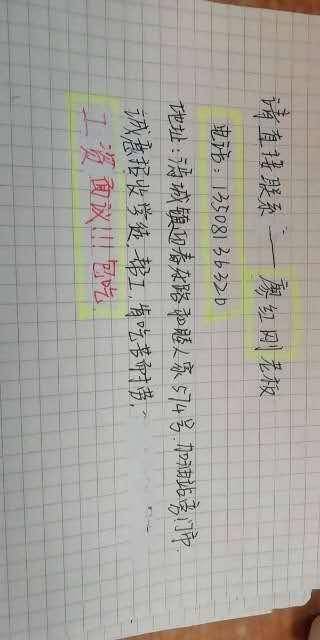 请直接联系——廖红刚老板
电话：13508136320
地址：清城镇迎春东路和睦人家574号.加油站旁门市.
诚意招收学徒、帮工，肯吃苦耐劳，
工资面议!!!包吃